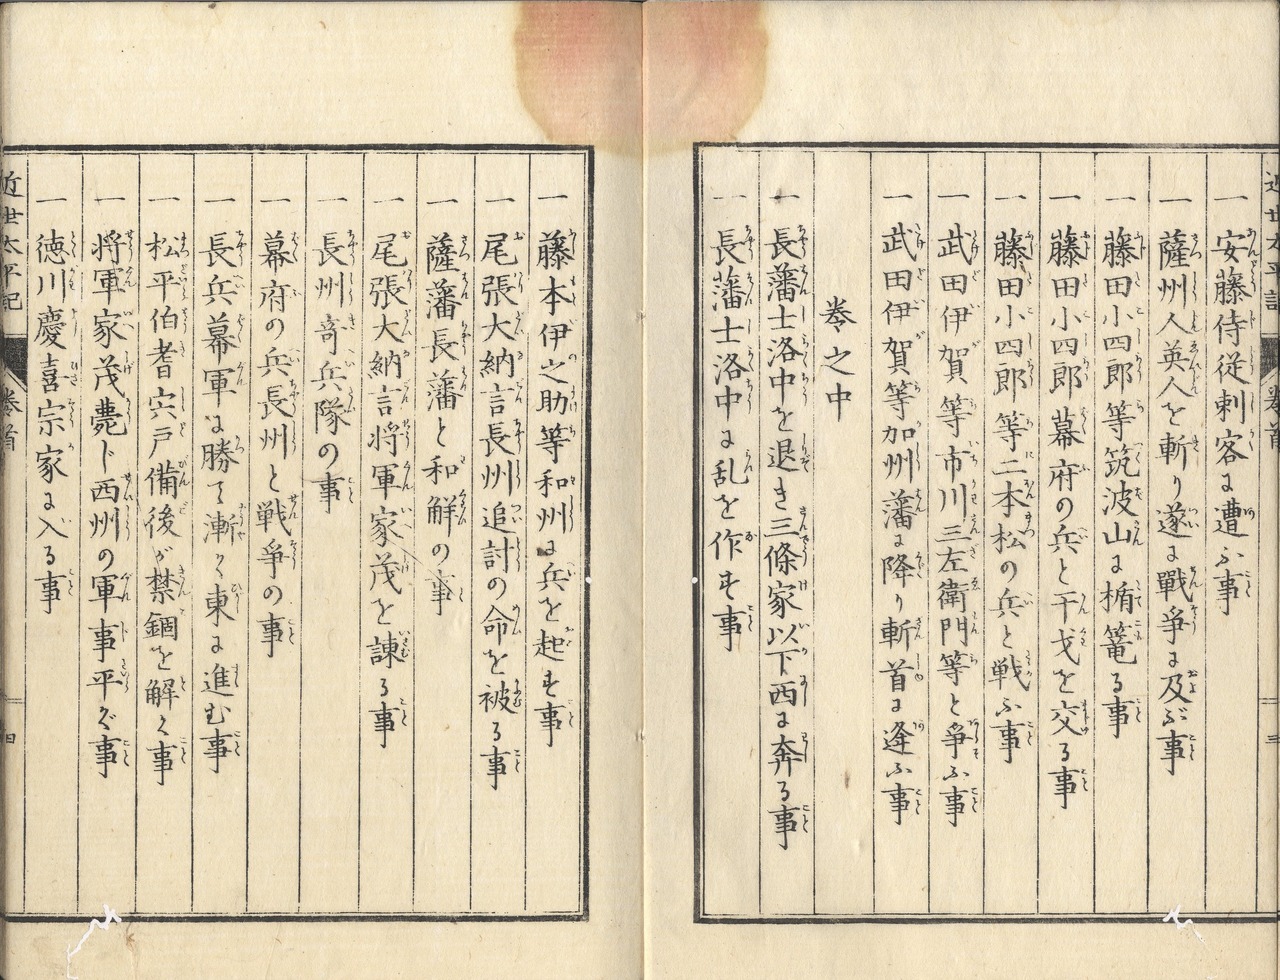 近世太平記 卷首 三
一 安藤侍従刺客に遭ふ事
一 薩州人英人を斬り遂に戰爭に及ぶ事
一 藤田小四郎等筑波山に楯篭る事
一 藤田小四郎幕府の兵と干戈を交る事
一 藤田小四郎等二本松の兵と戦ふ事
一 武田伊賀等市川三左衛門等と爭ふ事
一 武田伊賀等加州藩に降り斬首に逢ふ事
卷之中
一 長藩士洛中を退き三條家以下西に奔る事
一 長藩士洛中に乱を作す事
一 藤本伊之助等和州に兵を起す事
一 尾張大納言長州追討の命を被る事
一 薩藩長藩と和解の事
一 尾張大納言将軍家茂を諌る事
一 長州奇兵隊の事
一 幕府の兵長州と戦爭の事
一 長兵幕軍に勝て漸く東に進む事
一 松平伯耆宍戸備後が禁錮を解く事
一 将軍家茂薨じ西州の軍事平ぐ事
一 徳川慶喜宗家に入る事
近世太平記 卷首 四